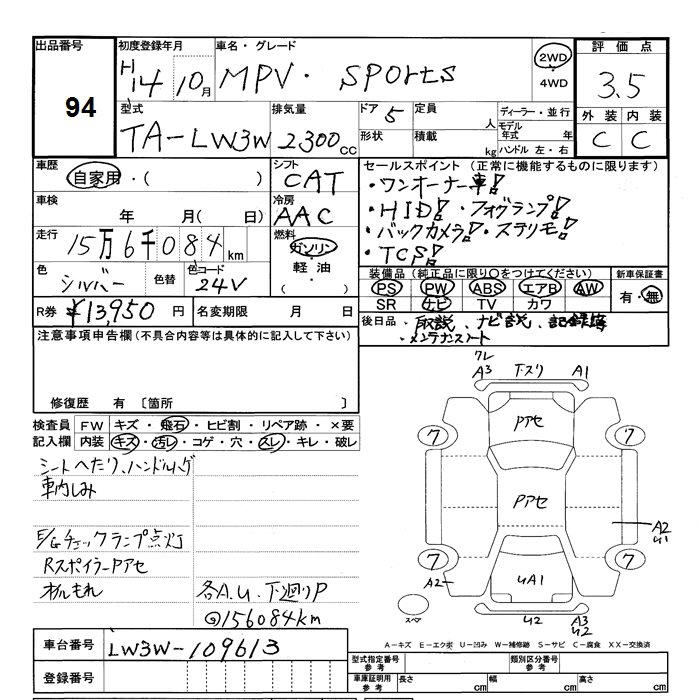 出品番号 初度登録年月 車名・グレード 評価点
94 H14 10月 MPV・SPORTS 2WD 4WD 3.5
型式 排気量 ドア 5 定員 人 ディーラー・並行 外装 内装
TA-LW3W 2300cc 形状 積載 kg モデル年式 年 ハンドル 左・右 C C
車歴 シフト セールスポイント (正常に機能するものに限ります)
自家用・( ) CAT ・ワンオーナー車!
車検 冷房 ・HID!・フォグランプ!
年 月( 日) AAC ・バックカメラ!・ステリモ!
走行 15万6千084km 燃料 ガソリン ・TCS!
色 シルバー 色替 色コード 24V 軽油・( )
装備品 (純正品に限り○をつけてください) 新車保証書
PS PW ABS エアB AW 有・無
SR ナビ TV カワ
R券 ¥13,950円 名変期限 月 日
後日品・取説、ナビ説、記録簿
・メンテナンスノート
注意事項申告欄(不具合内容等は具体的に記入して下さい)
修復歴 有 〔箇所 〕
検査員 FW キズ・飛石・ヒビ割・リペア跡・×要
記入欄 内装 キズ・汚レ・コゲ・穴・スレ・キレ・破レ
シートへたり、ハンドルハゲ
車内しみ
E/Gチェックランプ点灯
RスポイラーPアセ
オイルもれ 各A.U.下廻りP
◎156084km
クレ
A3 下スリ A1
Pアセ
7 7
Pアセ
A2
U1
7 7
A2 UA1
スペア U2 A3
U2
A-キズ E-エクボ U-凹み W-補修跡 S-サビ C-腐食 XX-交換済
車台番号 LW3W-109613
登録番号
型式指定番号 参考 類別区分番号 参考
車庫証明用 参考 長さ cm 幅 cm 高さ cm